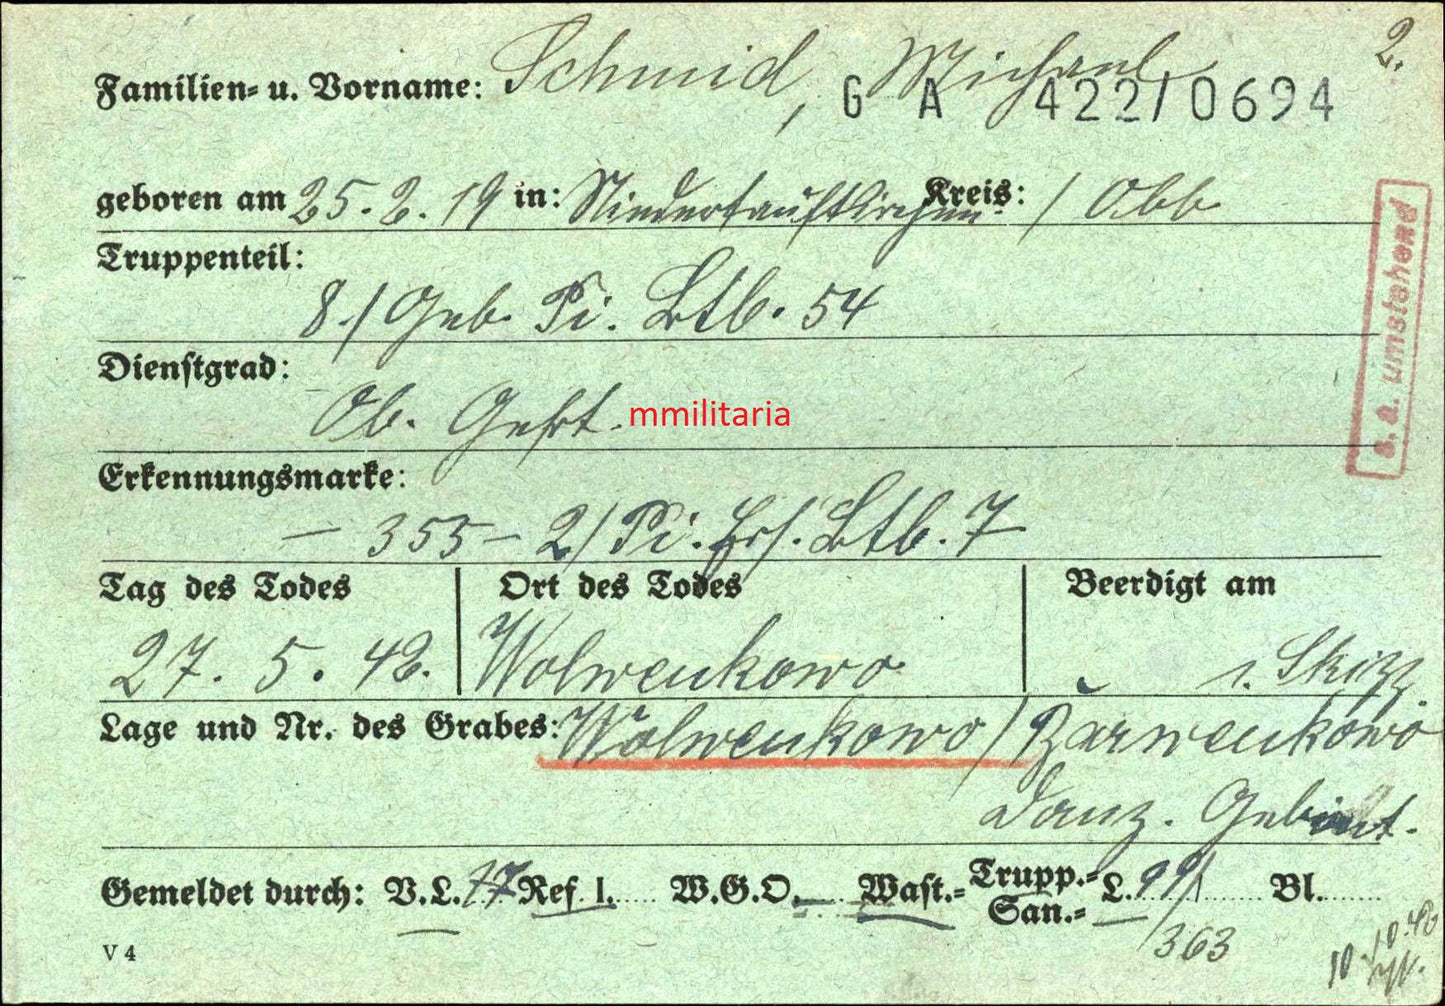 2.
Familien- u. Vorname: Schmid, Michael
G A 422/0694
geboren am 25.2.19 in: Niedertaufkirchen Kreis: / Obb
s. a. umstehend
Truppenteil:
8./Geb. Pi. Btl. 54
Dienstgrad:
Ob. Gefrt.
mmilitaria
Erkennungsmarke:
– 355 – 2/Pi. Ers. Btl. 7
Tag des Todes Ort des Todes Beerdigt am
27. 5. 42. Wolwenkowo s. Skizz.
Lage und Nr. des Grabes: Wolwenkowo/Barwenkowo
Donz. Gebiet.
Gemeldet durch: V.L. 17 Ref. I. W.G.O. Wast.- Trupp.- San.- L. 99/ Bl.
363
10.10.42
V 4